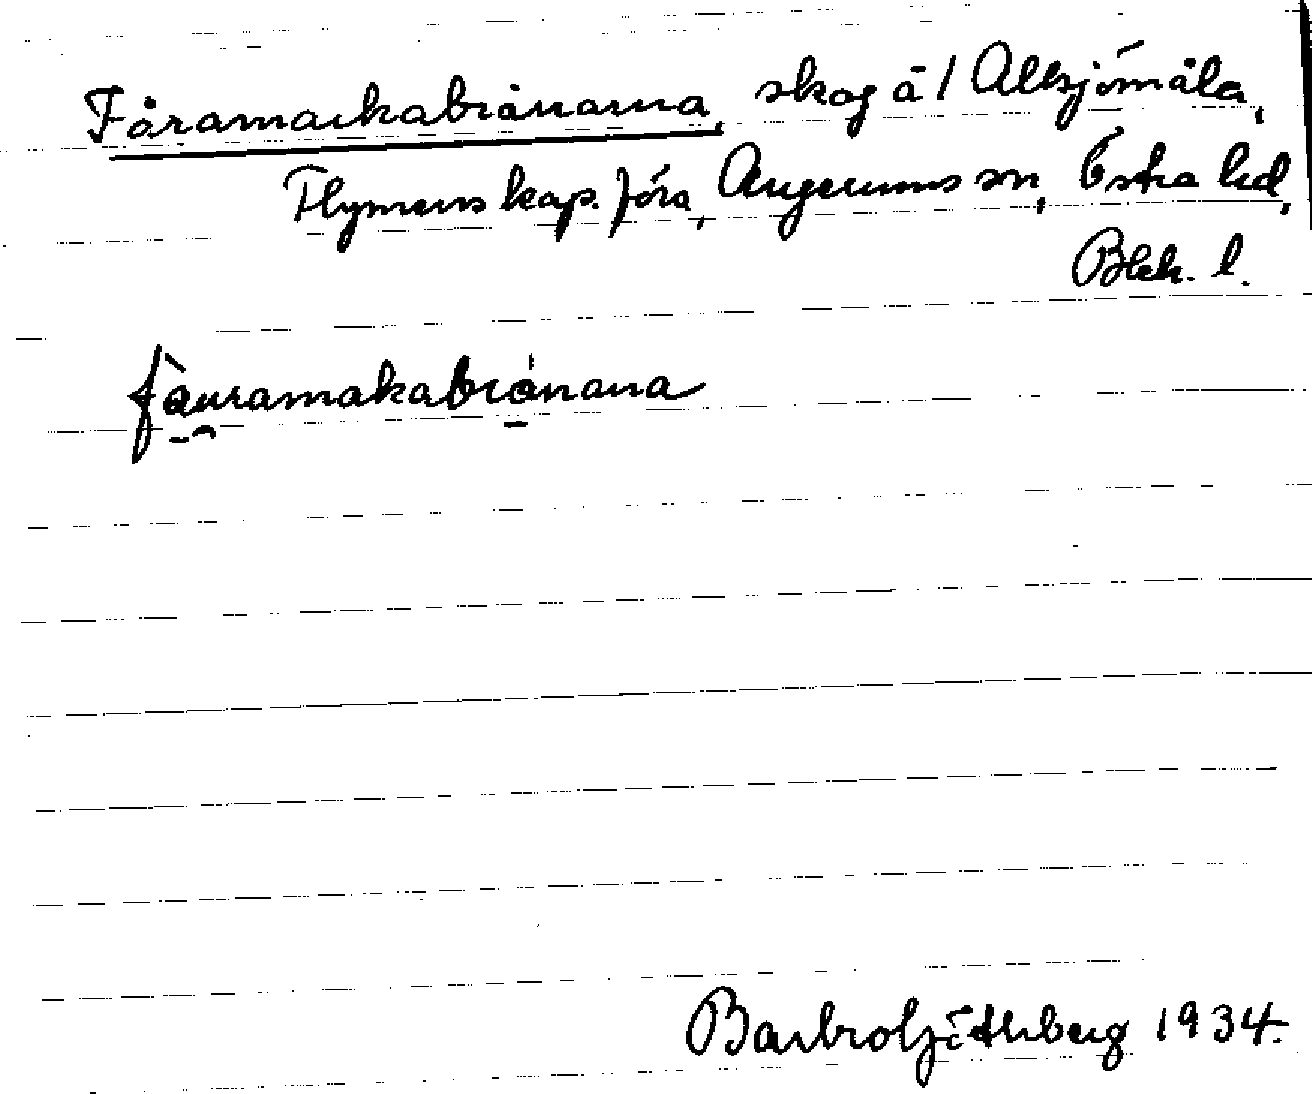 Fåramarkabränarna, skog å 1 Alksjömåla,
Flymens kap. förs, Augerums sn, Östra hd,
Blek. l.
fàuramakabránana
Barbro Söderberg 1934.